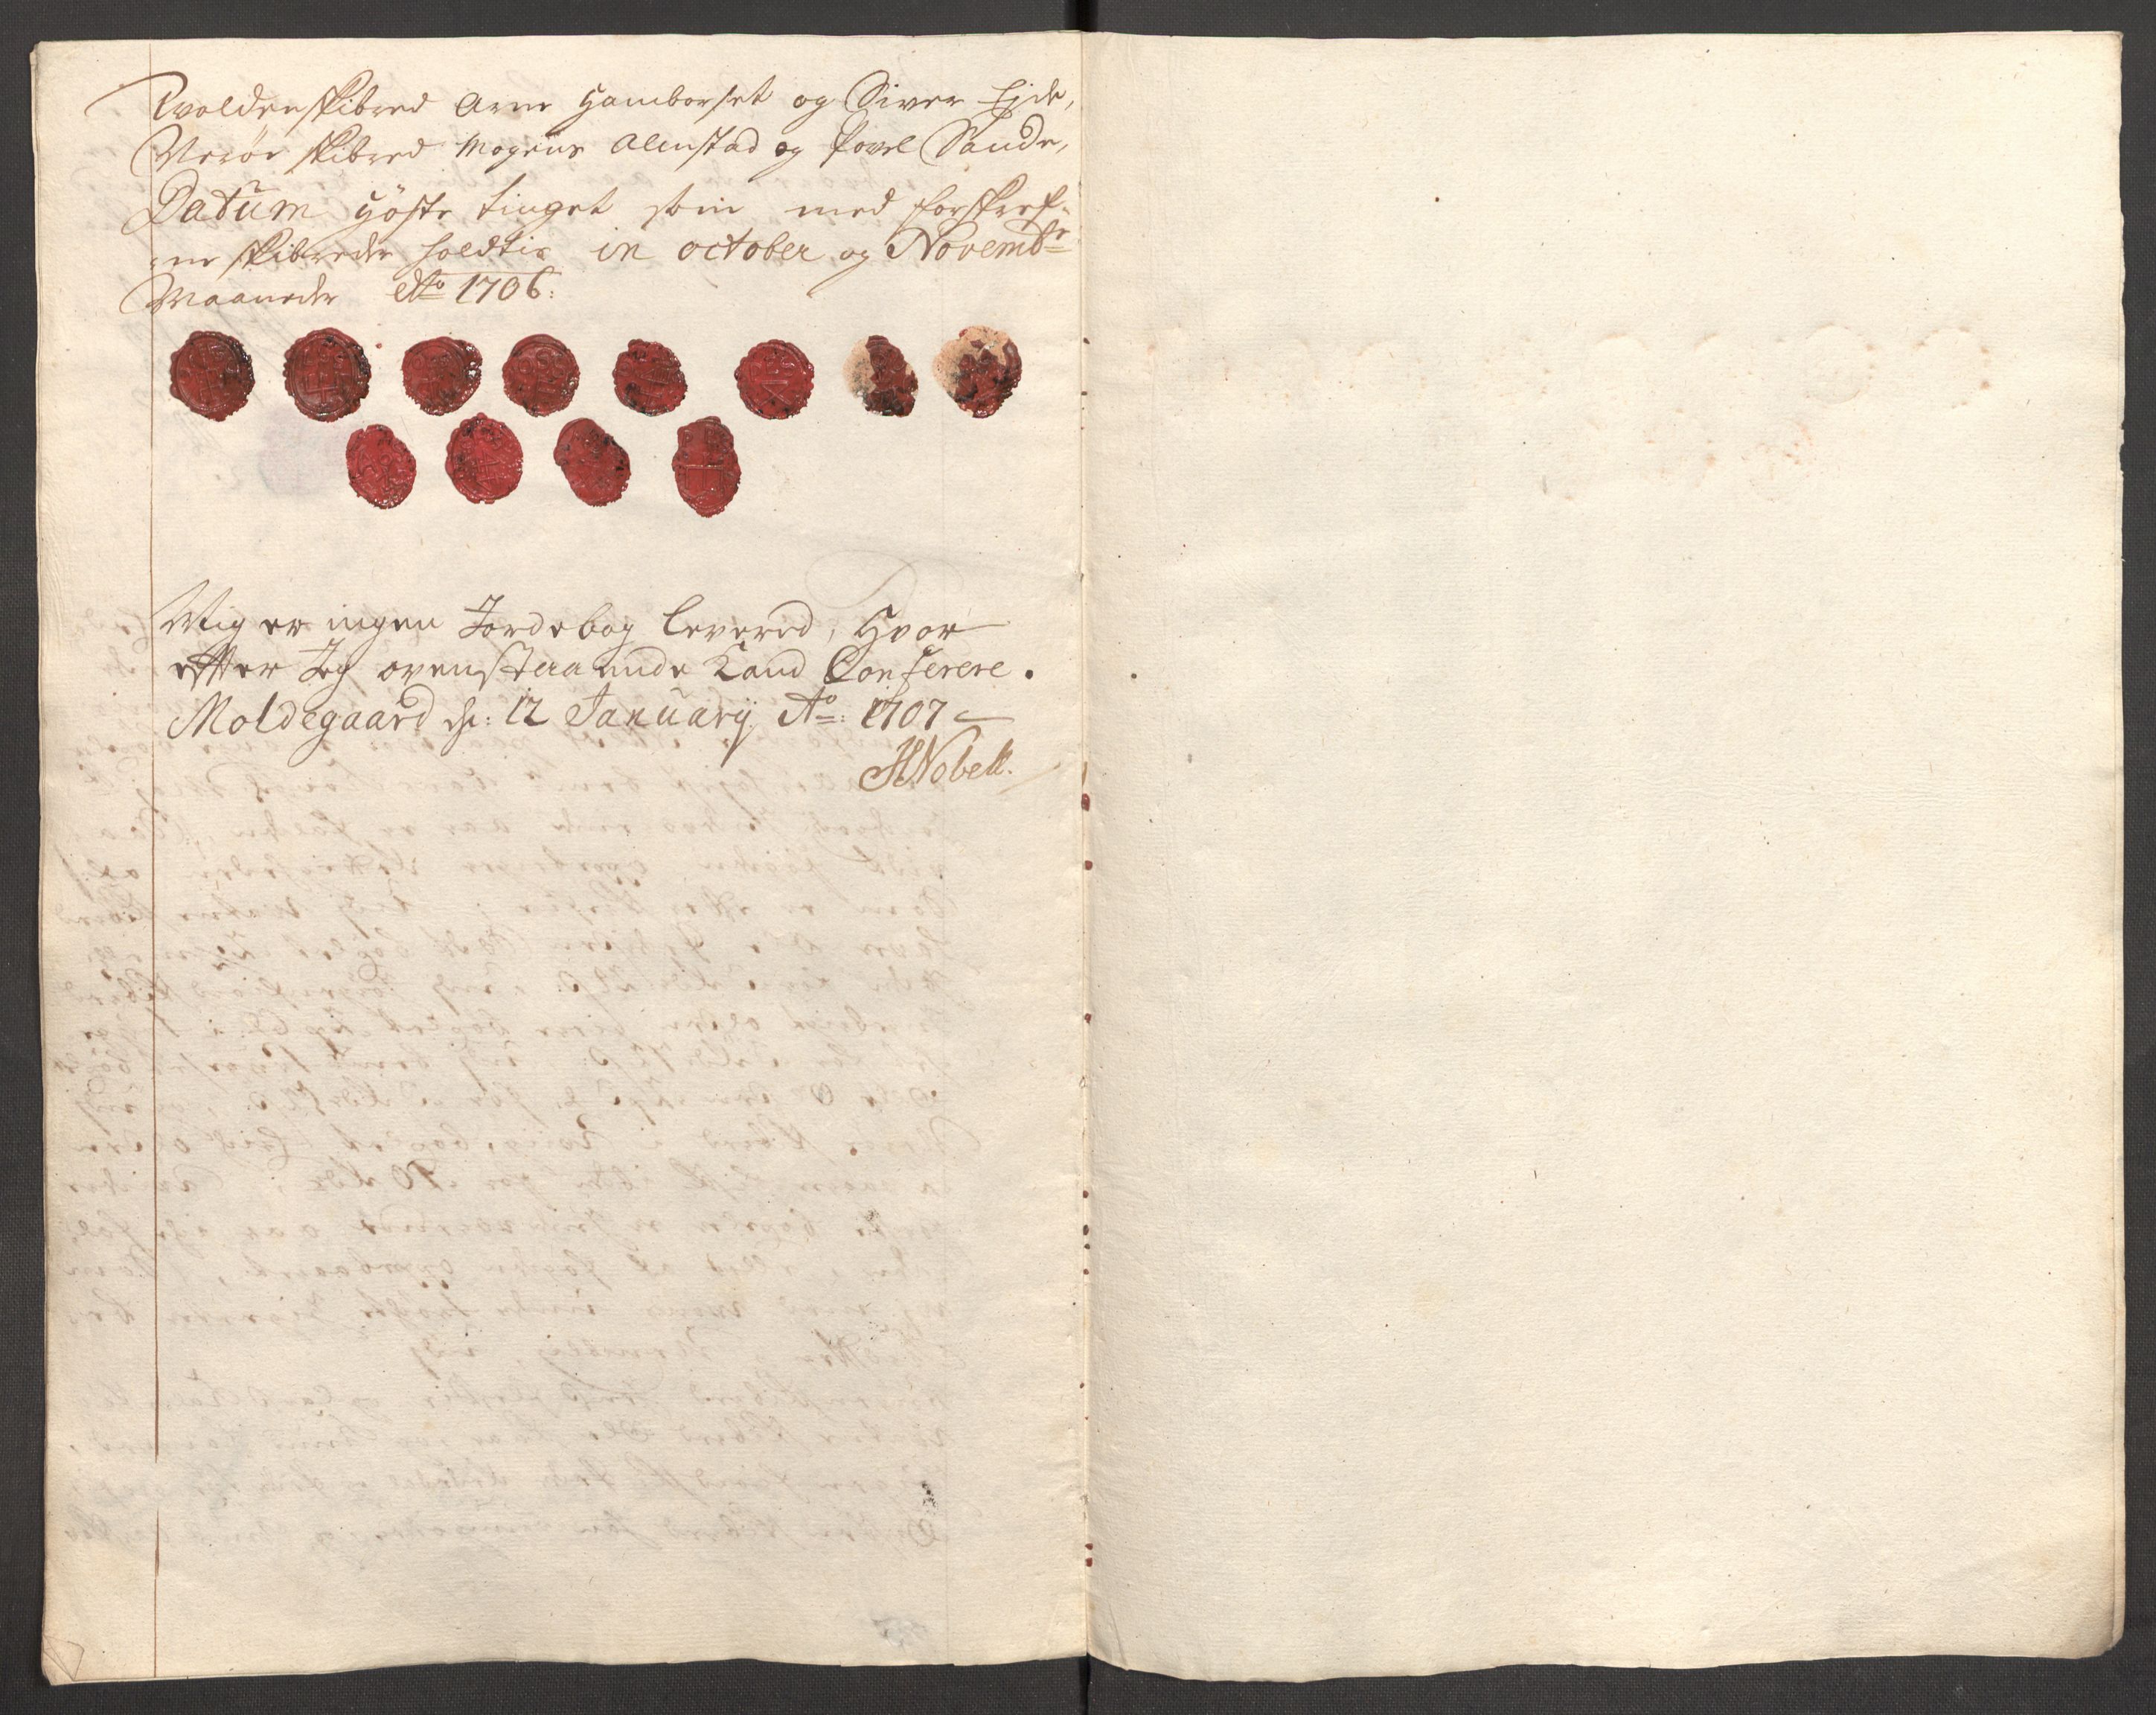 Woldenskibred Arne Hamborset og Siver Eide,
Werøe skibred Mogens Alenstad og Povel Sande,
Datum Høste tinget som med forskref-
ne skibreder holdtis in october og Novembr
Maaneder Ao 1706:
Mig er ingen Jordebog levered, Hvor
efter Jeg ovenstaaende Kand Conferere.
Moldegaard d: 12 January Ao: 1707
HNobell.